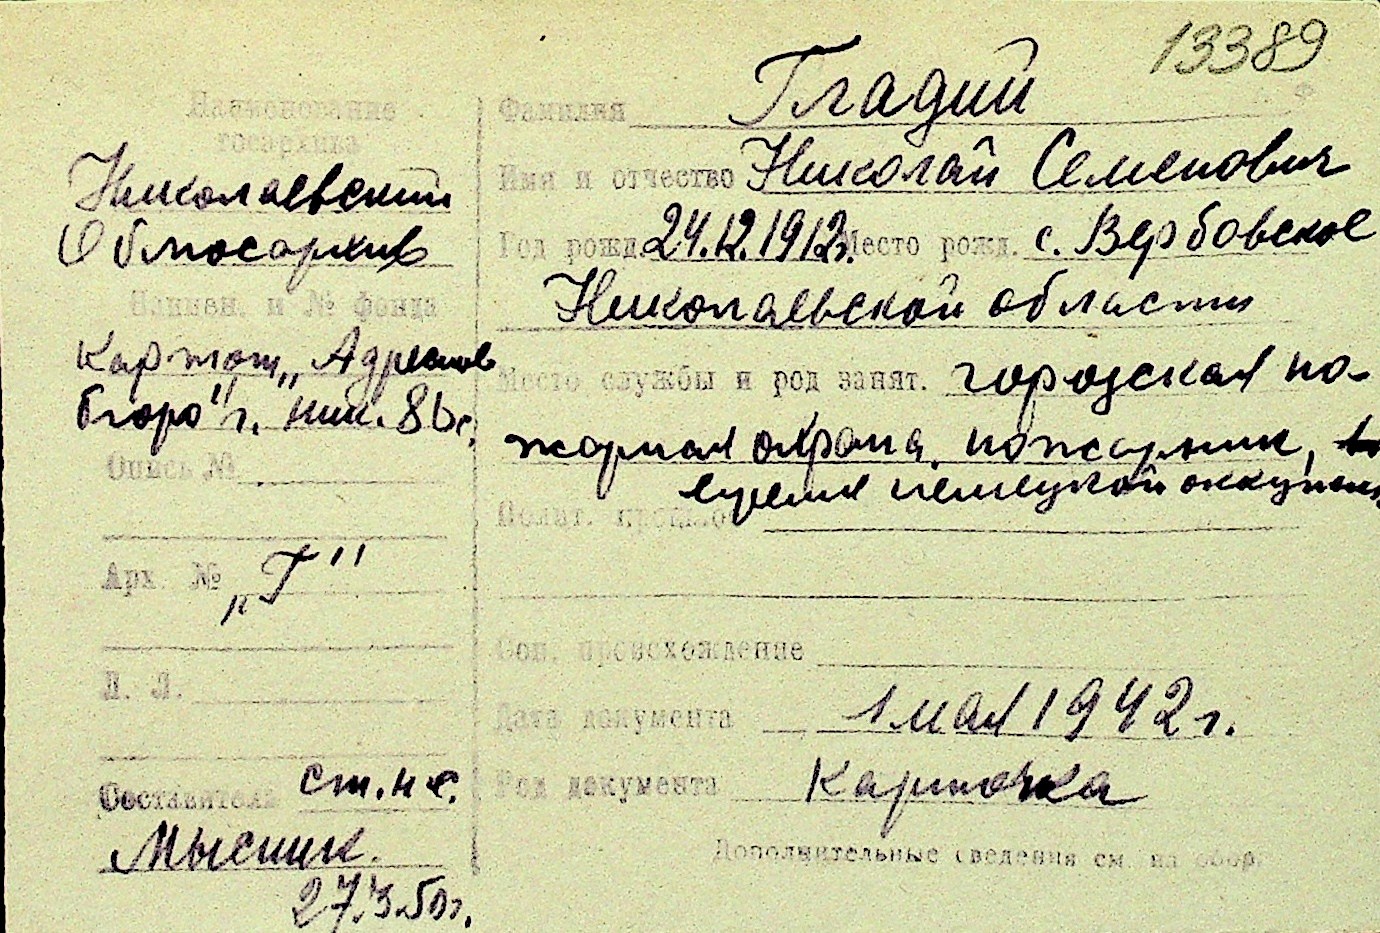 13389
Наименование
госархива
Николаевский
Облгосархив
Наимен. и № фонда
Картот. „Адресное
бюро" г. Ник.
Опись №
Арх. № „Г"
Л. Л.
Составитель ст. н.с.
Мысник.
27.3.50г.
Фамилия Гладий
Имя и отчество Николай Семенович
Год рожд. 24.12.1912г. Место рожд. с. Вербовское
Николаевской области
Место службы и род занят. городская по-
жарная охрана, пожарник,
время немецкой оккупации
Полит. прошлое
Соц. происхождение
Дата документа 1 мая 1942 г.
Род документа Карточка
Дополнительные сведения см. на обор.